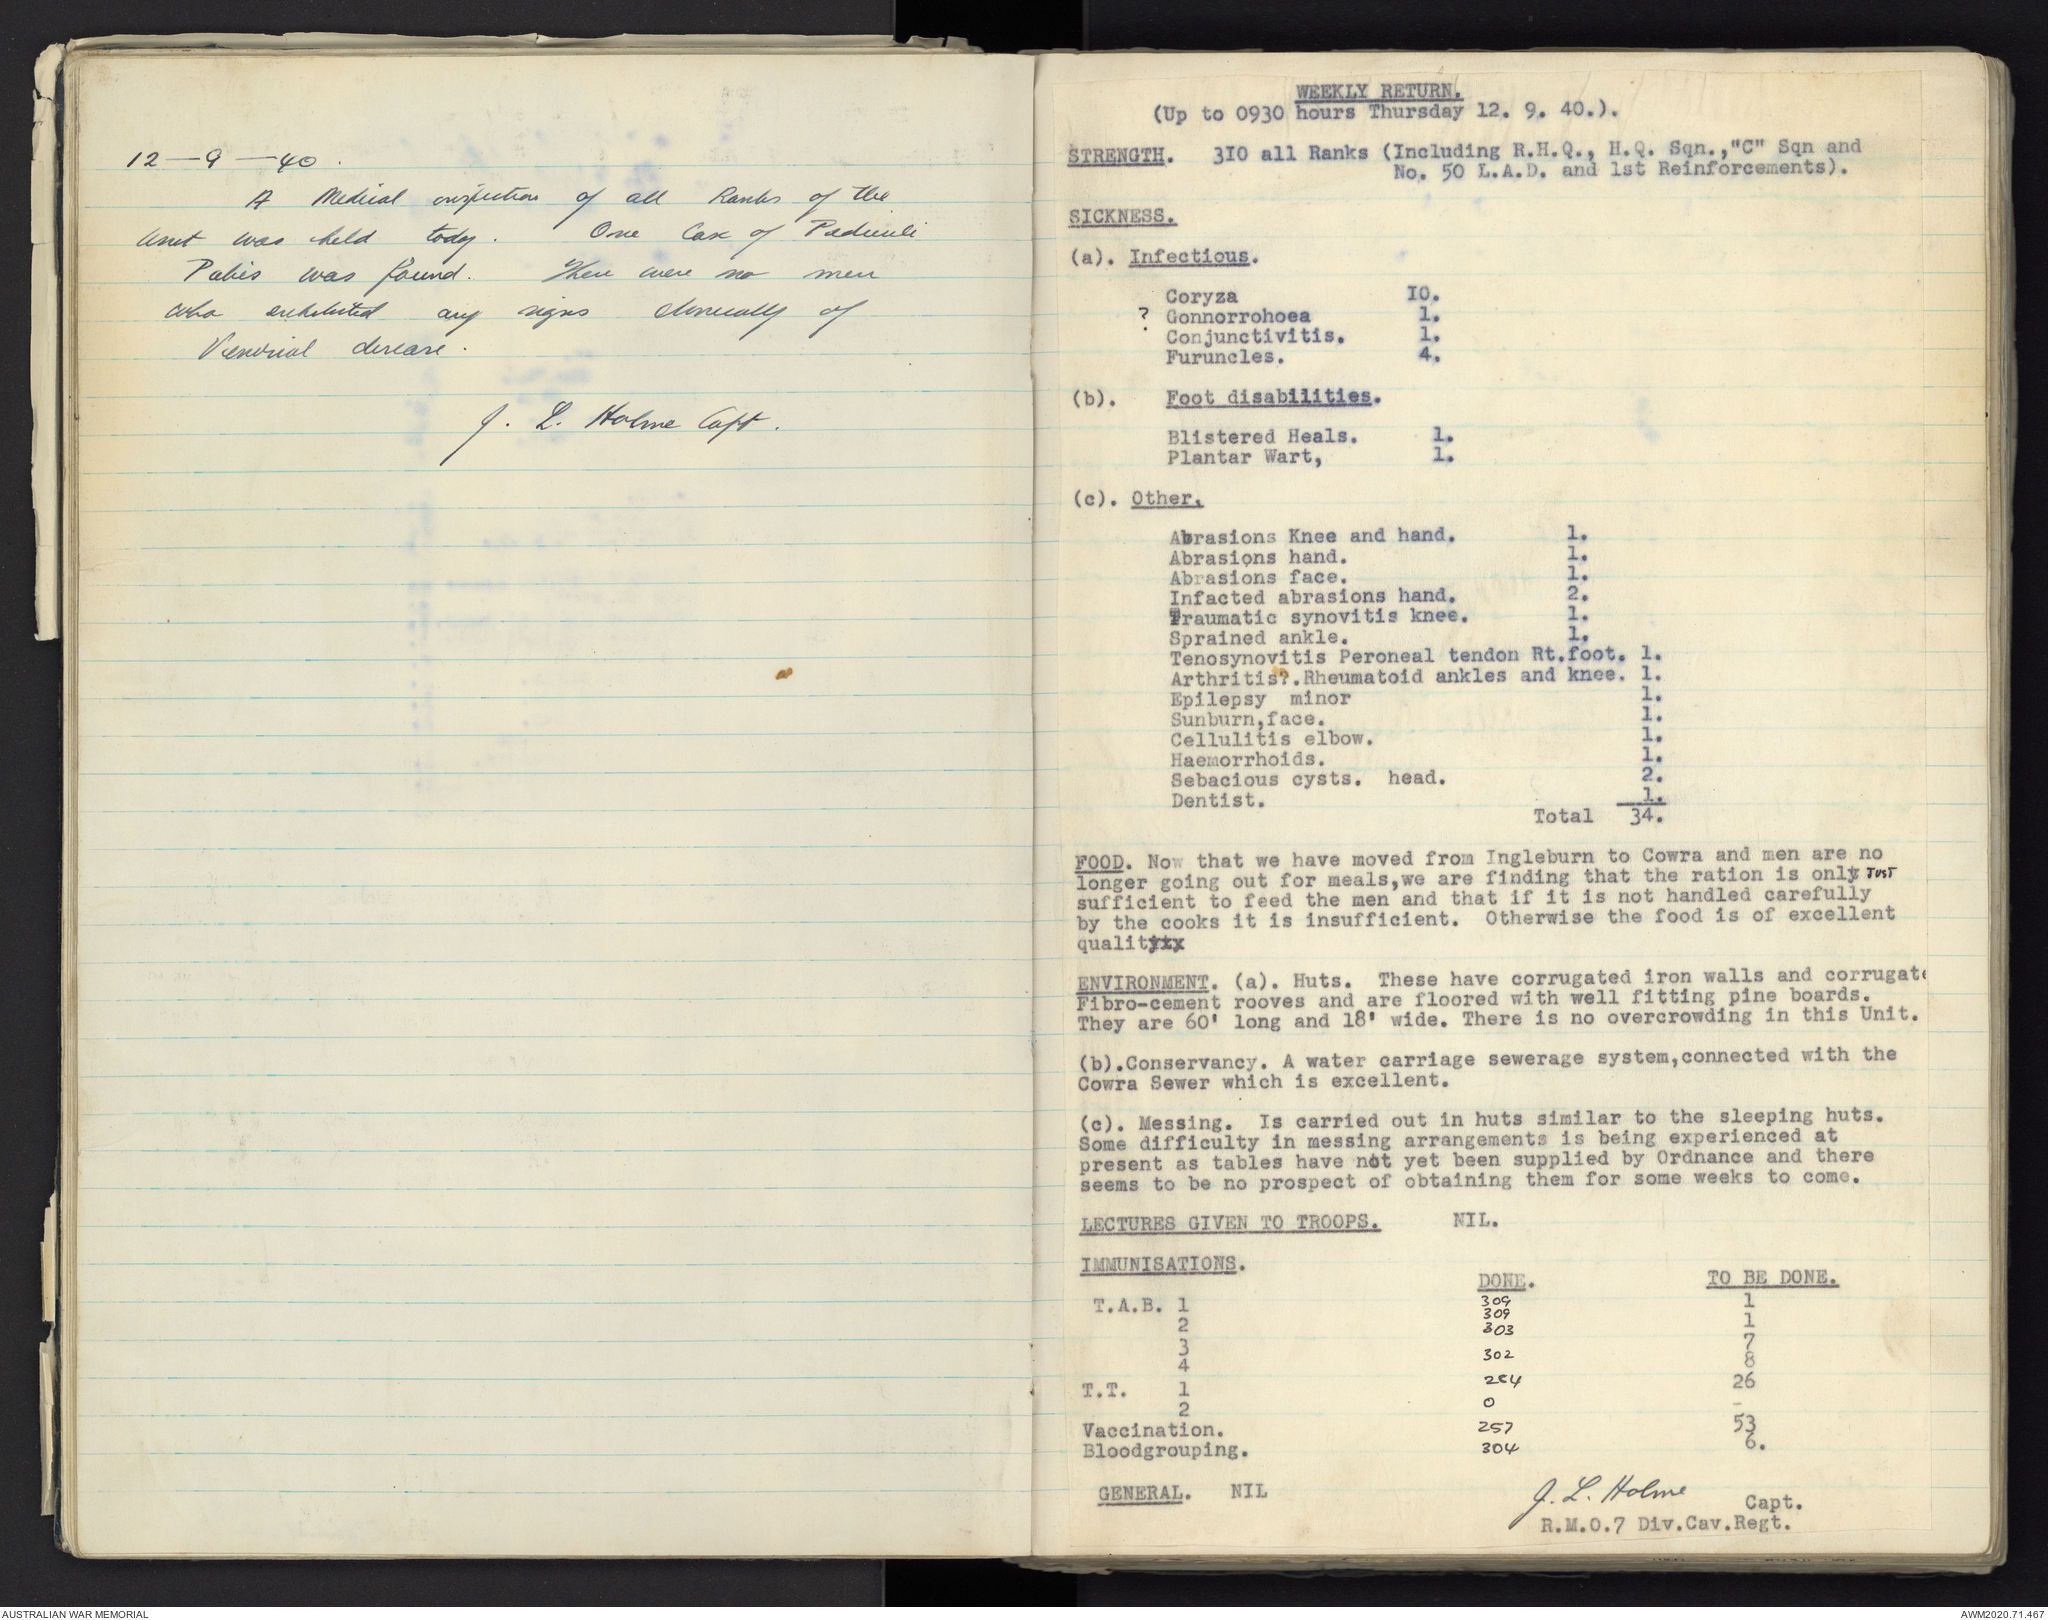 12-9-40.
A Medical inspection of all Ranks of the
Unit was held today. One Case of Pediculi
Pubis was found. There were no men
who exhibited any signs clinically of
Venerial disease.
J. L. Holme Capt.
WEEKLY RETURN.
(Up to 0930 hours Thursday 12. 9. 40.).
STRENGTH. 310 all Ranks (Including R.H.Q., H.Q. Sqn.,"C" Sqn and
No. 50 L.A.D. and 1st Reinforcements).
SICKNESS.
(a). Infectious.
Coryza 10.
? Gonnorrohoea 1.
Conjunctivitis. 1.
Furuncles. 4.
(b). Foot disabilities.
Blistered Heals. 1.
Plantar Wart, 1.
(c). Other.
Abrasions Knee and hand. 1.
Abrasions hand. 1.
Abrasions face. 1.
Infacted abrasions hand. 2.
Traumatic synovitis knee. 1.
Sprained ankle. 1.
Tenosynovitis Peroneal tendon Rt.foot. 1.
Arthritis?.Rheumatoid ankles and knee. 1.
Epilepsy minor 1.
Sunburn,face. 1.
Cellulitis elbow. 1.
Haemorrhoids. 1.
Sebacious cysts. head. 2.
Dentist. 1.
Total 34.
FOOD. Now that we have moved from Ingleburn to Cowra and men are no
longer going out for meals,we are finding that the ration is only JUST
sufficient to feed the men and that if it is not handled carefully
by the cooks it is insufficient. Otherwise the food is of excellent
quality
ENVIRONMENT. (a). Huts. These have corrugated iron walls and corrugate
Fibro-cement rooves and are floored with well fitting pine boards.
They are 60' long and 18' wide. There is no overcrowding in this Unit.
(b).Conservancy. A water carriage sewerage system,connected with the
Cowra Sewer which is excellent.
(c). Messing. Is carried out in huts similar to the sleeping huts.
Some difficulty in messing arrangements is being experienced at
present as tables have not yet been supplied by Ordnance and there
seems to be no prospect of obtaining them for some weeks to come.
LECTURES GIVEN TO TROOPS. NIL.
IMMUNISATIONS.
DONE. TO BE DONE.
T.A.B. 1 309 1
2 309 1
3 303 7
4 302 8
T.T. 1 284 26
2 0 -
Vaccination. 257 53
Bloodgrouping. 304 6.
GENERAL. NIL
J. L. Holme Capt.
R.M.O.7 Div.Cav.Regt.
AUSTRALIAN WAR MEMORIAL
AWM2020.71.467